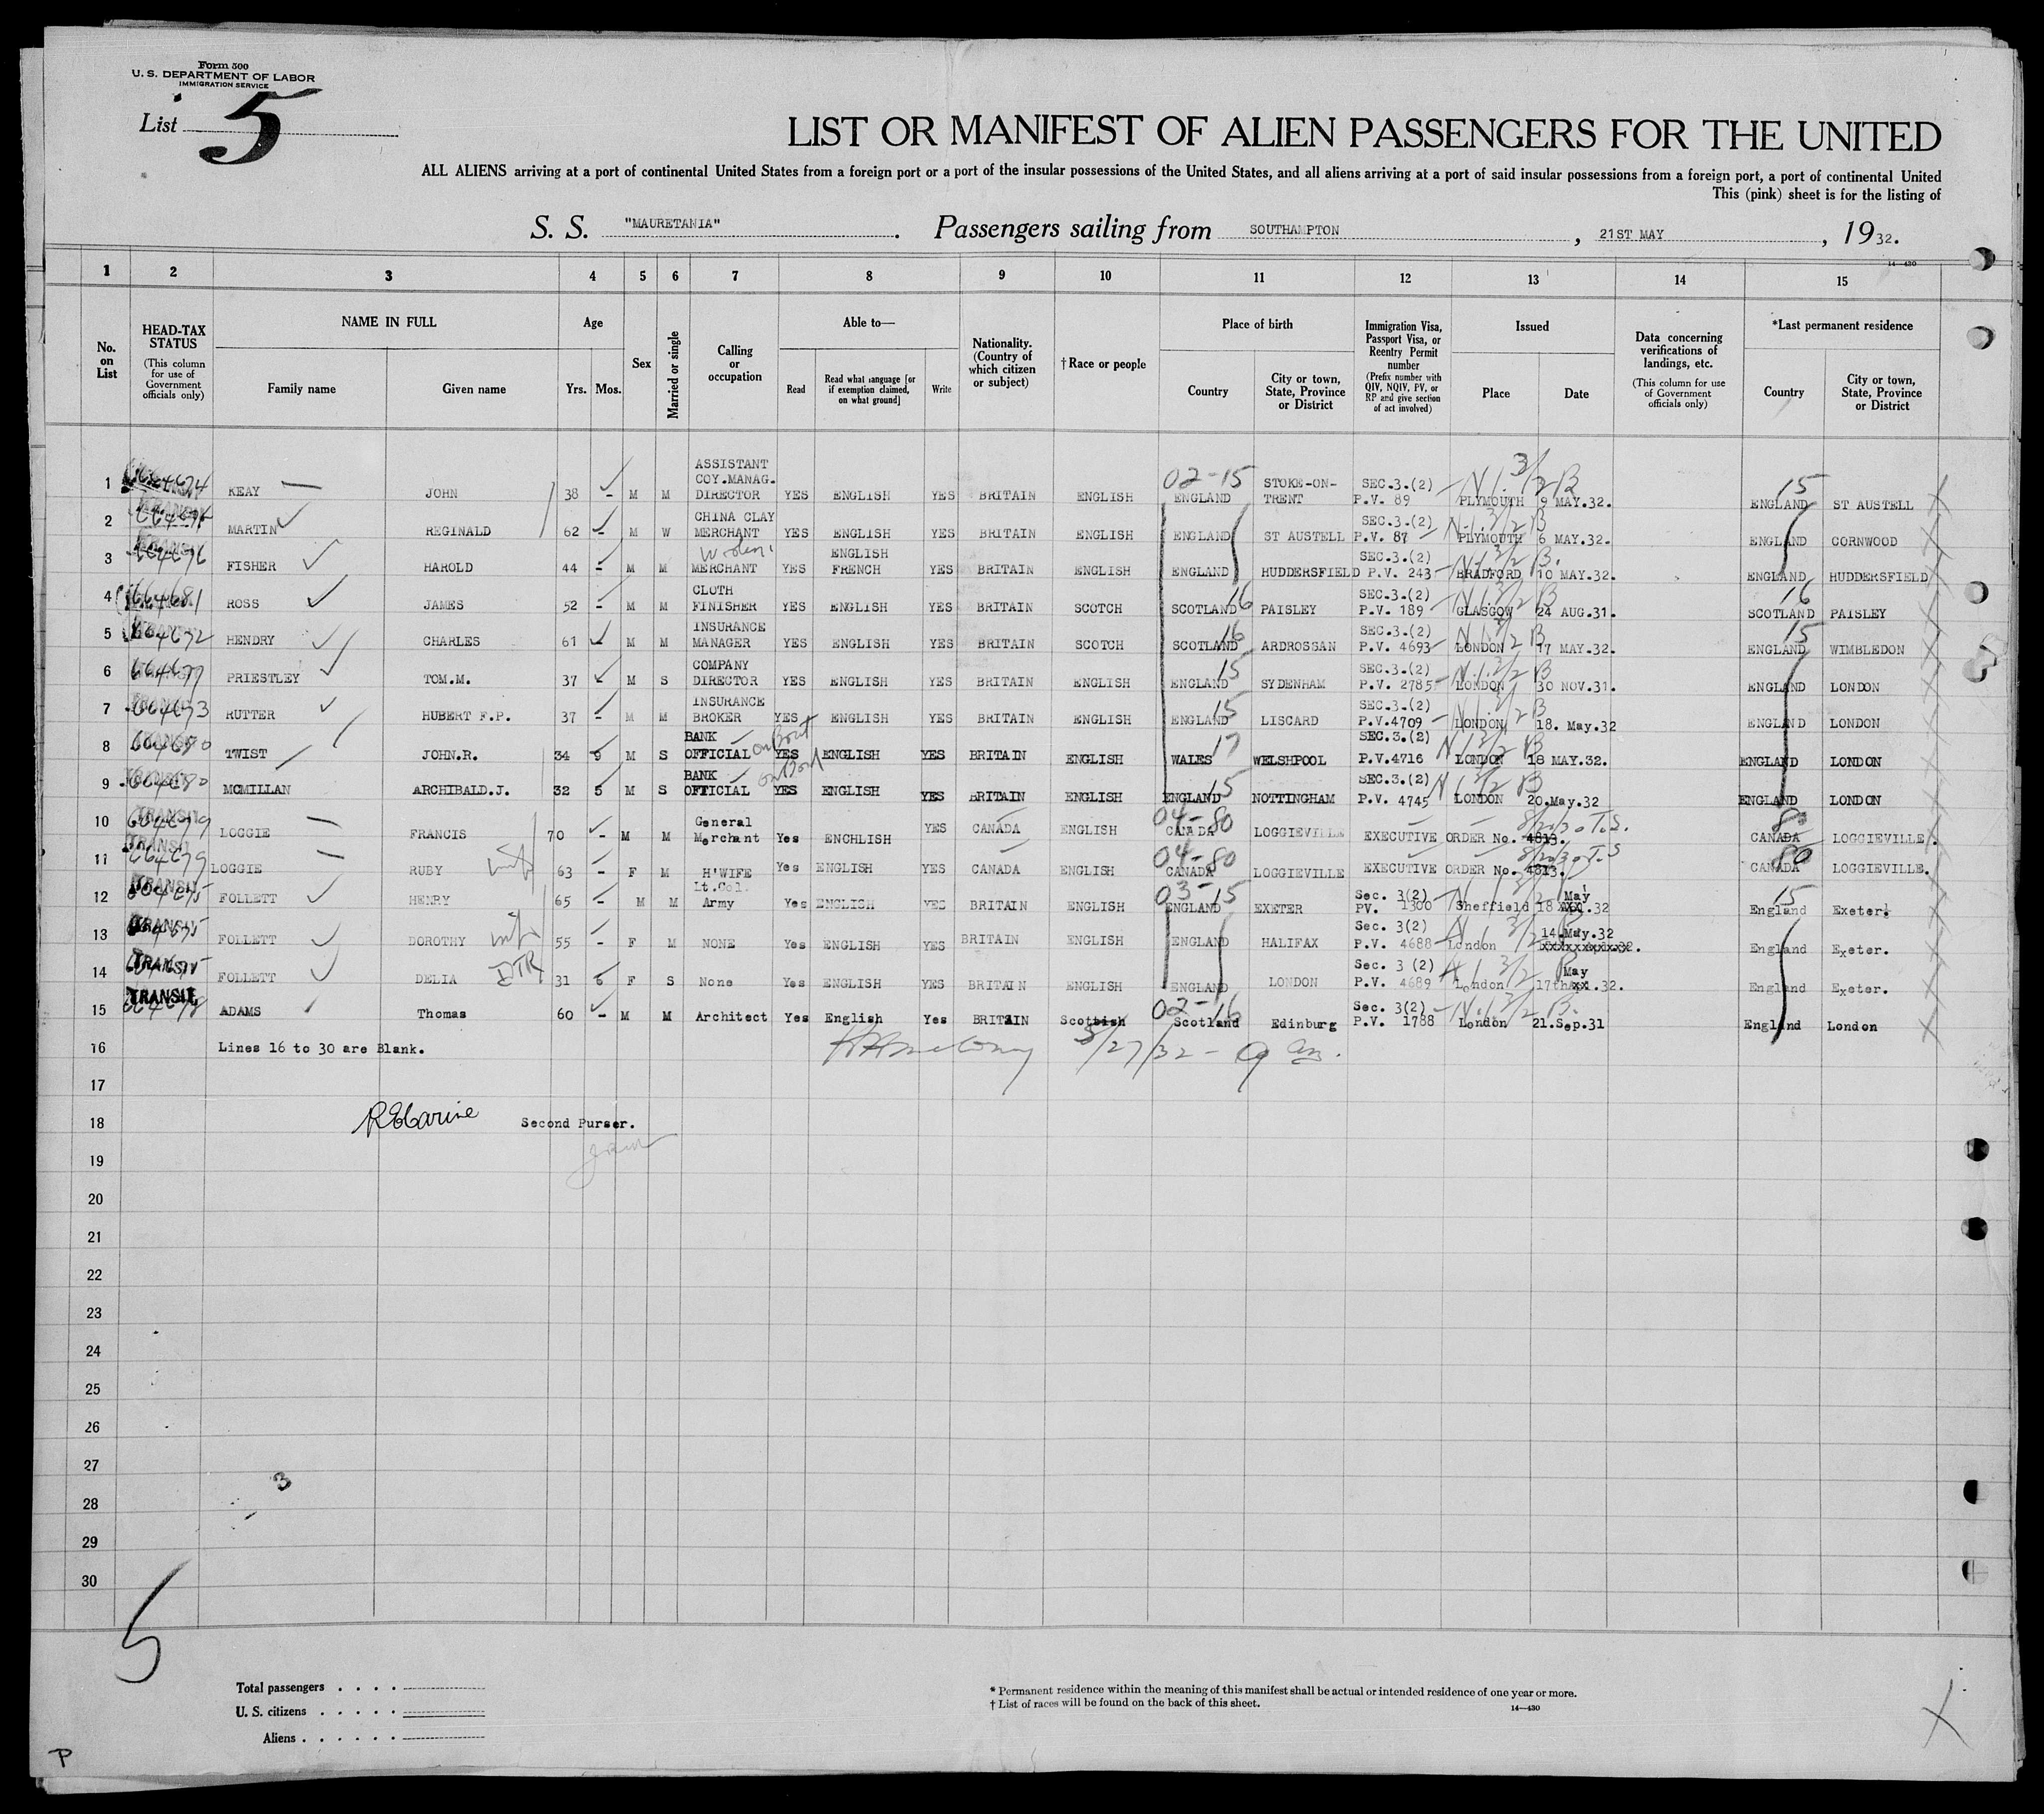 Form 500
U. S. DEPARTMENT OF LABOR
IMMIGRATION SERVICE
List 5
LIST OR MANIFEST OF ALIEN PASSENGERS FOR THE UNITED
ALL ALIENS arriving at a port of continental United States from a foreign port or a port of the insular possessions of the United States, and all aliens arriving at a port of said insular possessions from a foreign port, a port of continental United
This (pink) sheet is for the listing of
S. S. "MAURETANIA" . Passengers sailing from SOUTHAMPTON , 21ST MAY , 1932.
14—430
1 2 3 4 5 6 7 8 9 10 11 12 13 14 15
No. on List
HEAD-TAX STATUS (This column for use of Government officials only)
NAME IN FULL Family name Given name
Age Yrs. Mos.
Sex
Married or single
Calling or occupation
Able to— Read Read what language [or if exemption claimed, on what ground] Write
Nationality. (Country of which citizen or subject)
†Race or people
Place of birth Country City or town, State, Province or District
Immigration Visa, Passport Visa, or Reentry Permit number (Prefix number with QIV, NQIV, PV, or RP and give section of act involved)
Issued Place Date
Data concerning verifications of landings, etc. (This column for use of Government officials only)
*Last permanent residence Country City or town, State, Province or District
1 664674 KEAY JOHN 38 - M M ASSISTANT COY.MANAG. DIRECTOR YES ENGLISH YES BRITAIN ENGLISH 02-15 ENGLAND STOKE-ON-TRENT SEC.3.(2) P.V. 89 PLYMOUTH 9 MAY.32. 15 ENGLAND ST AUSTELL
2 MARTIN REGINALD 62 - M W CHINA CLAY MERCHANT YES ENGLISH YES BRITAIN ENGLISH ENGLAND ST AUSTELL SEC.3.(2) P.V. 87 PLYMOUTH 6 MAY.32. ENGLAND CORNWOOD
3 664676 FISHER HAROLD 44 - M M MERCHANT YES ENGLISH FRENCH YES BRITAIN ENGLISH ENGLAND HUDDERSFIELD SEC.3.(2) P.V. 243 BRADFORD 10 MAY.32. ENGLAND HUDDERSFIELD
4 664681 ROSS JAMES 52 - M M CLOTH FINISHER YES ENGLISH YES BRITAIN SCOTCH SCOTLAND 16 PAISLEY SEC.3.(2) P.V. 189 GLASGOW 24 AUG.31. 16 SCOTLAND PAISLEY
5 664672 HENDRY CHARLES 61 - M M INSURANCE MANAGER YES ENGLISH YES BRITAIN SCOTCH SCOTLAND 16 ARDROSSAN SEC.3.(2) P.V. 4693 LONDON 17 MAY.32. 15 ENGLAND WIMBLEDON
6 664677 PRIESTLEY TOM.M. 37 - M S COMPANY DIRECTOR YES ENGLISH YES BRITAIN ENGLISH ENGLAND 15 SYDENHAM SEC.3.(2) P.V. 2785 LONDON 30 NOV.31. ENGLAND LONDON
7 664673 RUTTER HUBERT F.P. 37 - M M INSURANCE BROKER YES ENGLISH YES BRITAIN ENGLISH ENGLAND 15 LISCARD SEC.3.(2) P.V.4709 LONDON 18. May.32 ENGLAND LONDON
8 TWIST JOHN.R. 34 9 M S BANK OFFICIAL YES ENGLISH YES BRITAIN ENGLISH WALES 17 WELSHPOOL SEC.3.(2) P.V.4716 LONDON 18 MAY.32. ENGLAND LONDON
9 664680 MCMILLAN ARCHIBALD.J. 32 5 M S BANK OFFICIAL YES ENGLISH YES BRITAIN ENGLISH ENGLAND 15 NOTTINGHAM SEC.3.(2) P.V. 4745 LONDON 20.May.32 ENGLAND LONDON
10 TRANSIT 664679 LOGGIE FRANCIS 70 - M M General Merchant Yes ENCHLISH YES CANADA ENGLISH 04-80 CANADA LOGGIEVILLE EXECUTIVE ORDER No. 4813. 80 CANADA LOGGIEVILLE.
11 TRANSIT 664679 LOGGIE RUBY wife 63 - F M H'WIFE Yes ENGLISH YES CANADA ENGLISH 04-80 CANADA LOGGIEVILLE EXECUTIVE ORDER No. 4813. 80 CANADA LOGGIEVILLE.
12 TRANSIT 664675 FOLLETT HENRY 65 - M M Lt.Col. Army Yes ENGLISH YES BRITAIN ENGLISH 03-15 ENGLAND EXETER Sec. 3(2) PV. 1300 Sheffield 18 May xxx.32 15 England Exeter.
13 TRANSIT FOLLETT DOROTHY wife 55 - F M NONE Yes ENGLISH YES BRITAIN ENGLISH ENGLAND HALIFAX Sec. 3(2) P.V. 4688 London 14.May.32 England Exeter.
14 TRANSIT FOLLETT DELIA DTR 31 6 F S None Yes ENGLISH YES BRITAIN ENGLISH ENGLAND LONDON Sec. 3 (2) P.V. 4689 London 17th May xx.32. England Exeter.
15 TRANSIT 664678 ADAMS Thomas 60 - M M Architect Yes English Yes BRITAIN Scottish 02-16 Scotland Edinburg Sec. 3(2) P.V. 1788 London 21.Sep.31 England London
16 Lines 16 to 30 are Blank. 5/27/32 - 9 am.
17
18 Second Purser.
19
20
21
22
23
24
25
26
27
3
28
29
30
5
Total passengers . . . .
U. S. citizens . . . . .
Aliens . . . . . .
* Permanent residence within the meaning of this manifest shall be actual or intended residence of one year or more.
† List of races will be found on the back of this sheet.
14—430
X
P